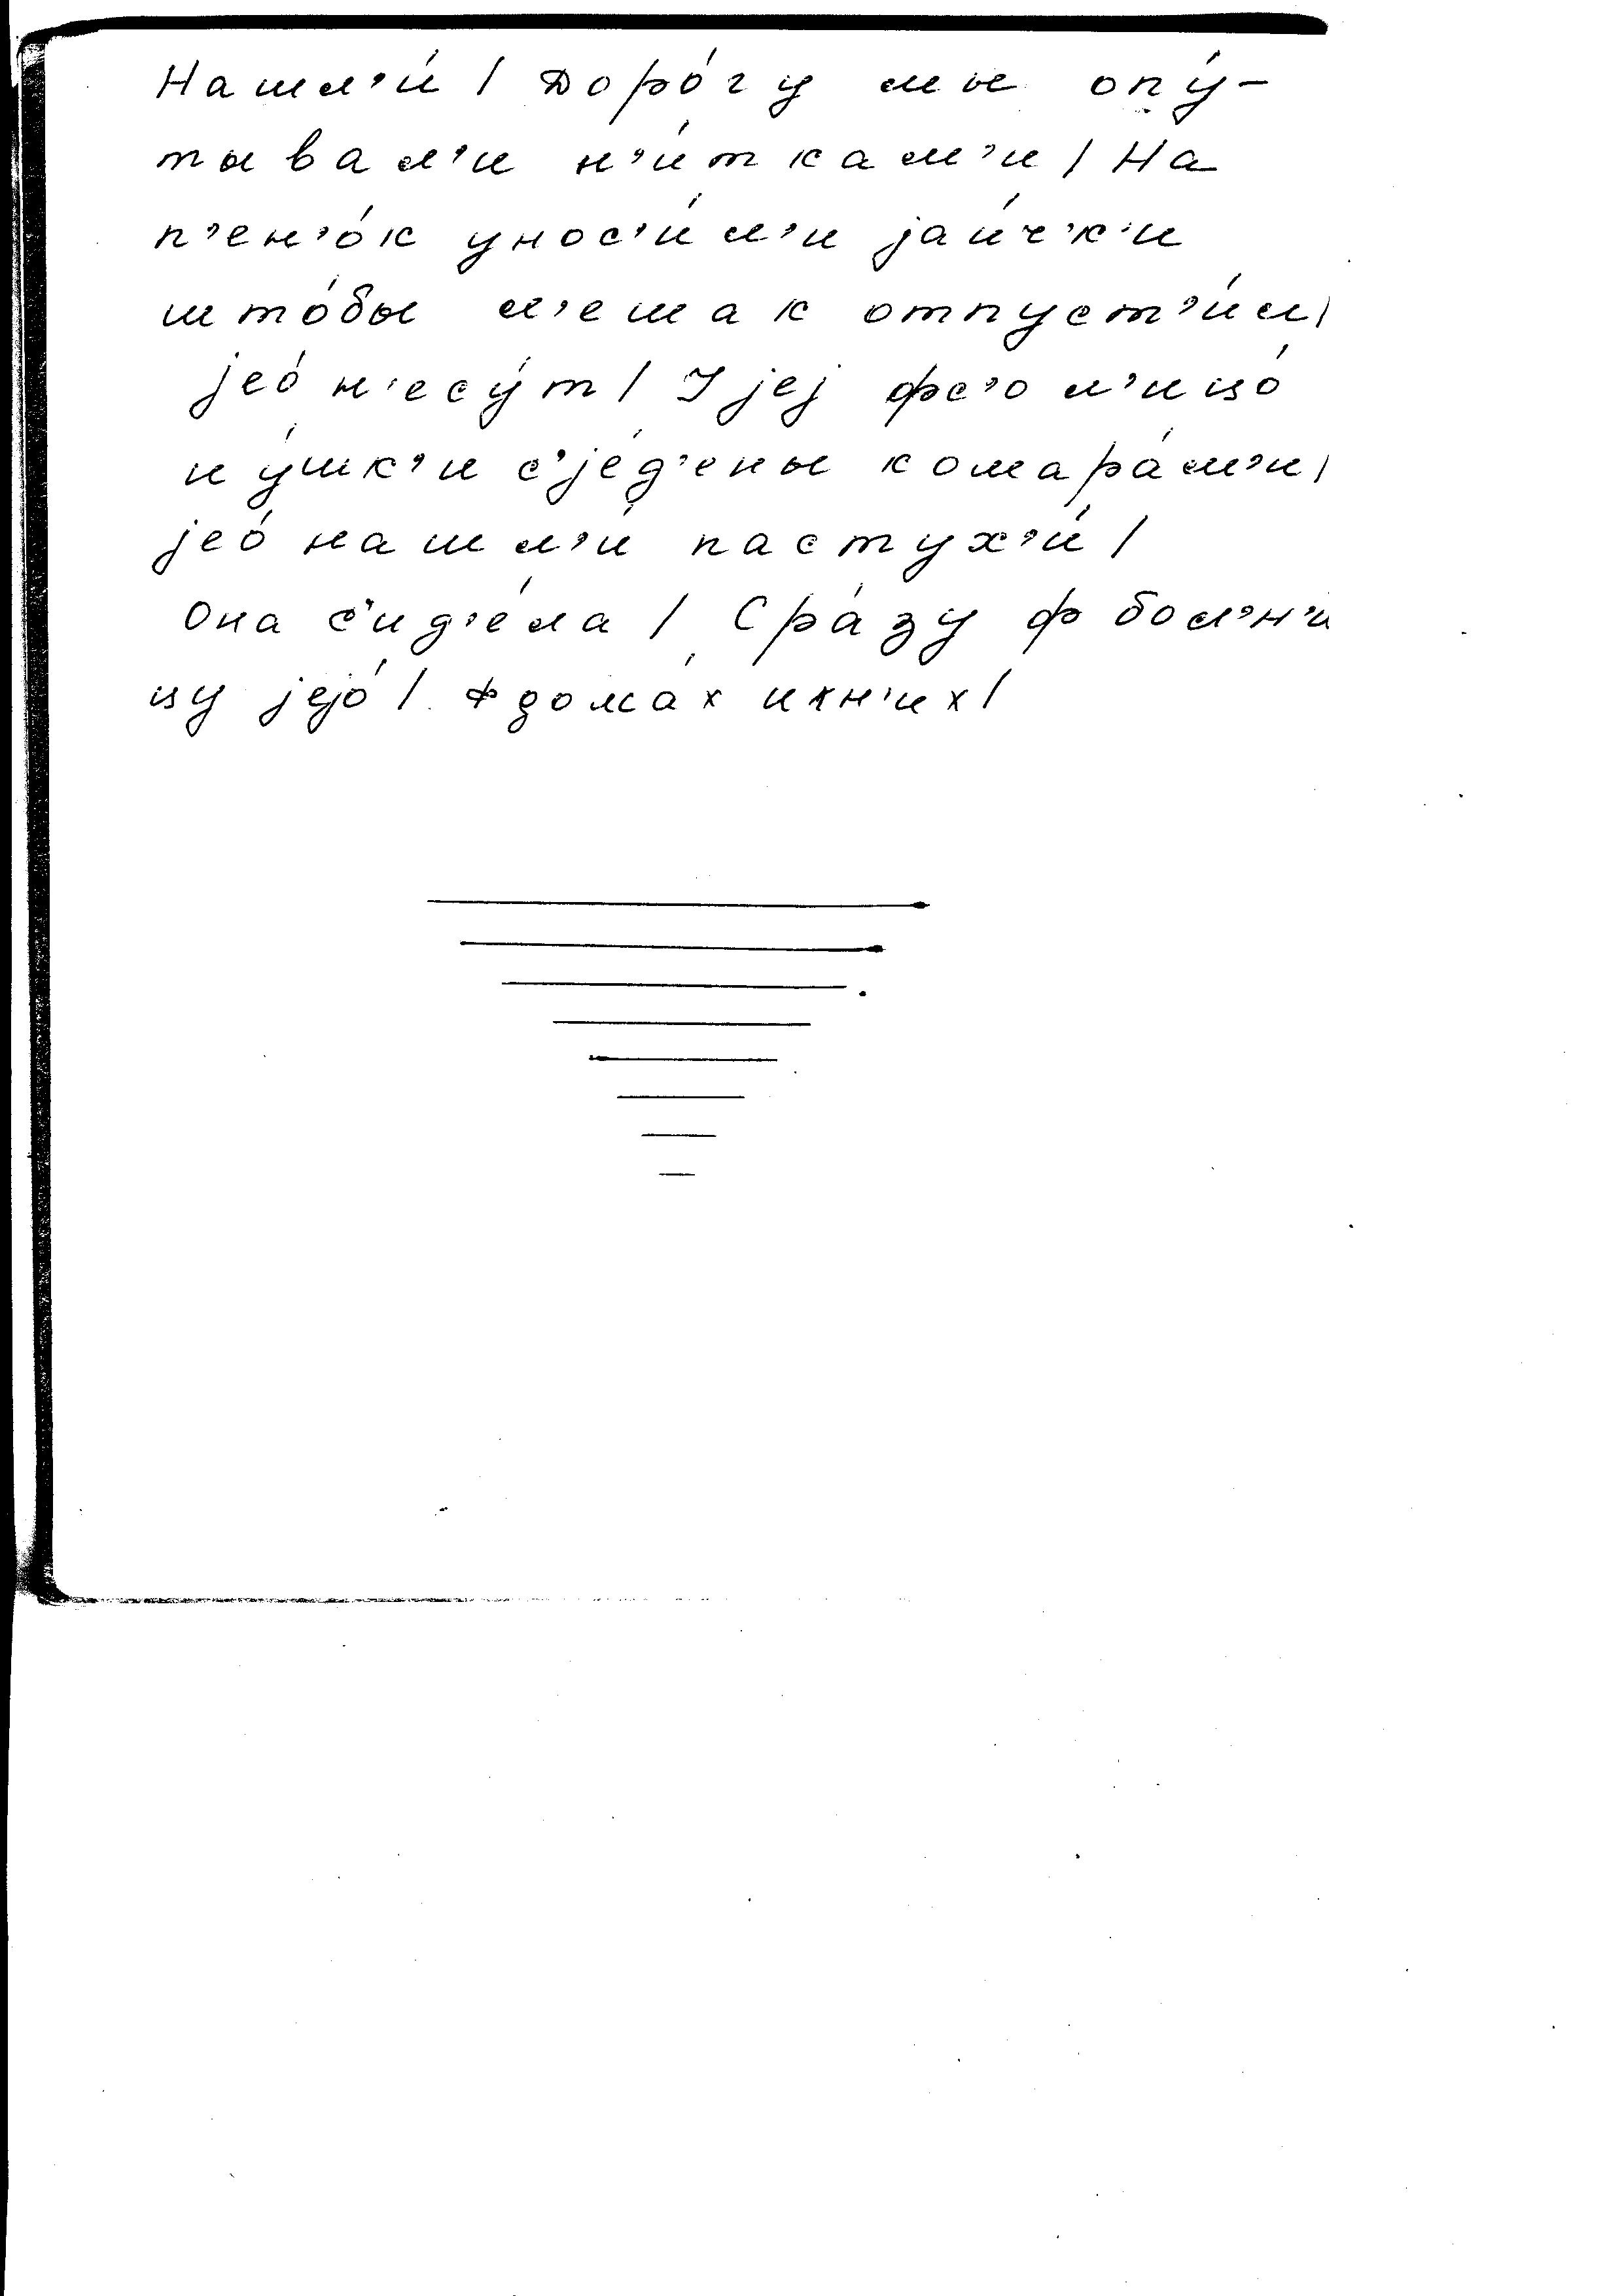 Нашл’и́ / Доро́гу мы опу́-
тывал’и н’и́ткам’и / На
п’ен’о́к унос’и́л’и jаи́ч’к’и
што́бы л’ешак отпуст’и́л /
jео́ н’есу́т / И jеj фс’о л’ицо́
и у́шк’и с’jе́д’ены комара́м’и /
jео́ нашл’и́ пастух’и́ /
Она с’ид’е́ла / Сра́зу ф бол’н’и
цу jеjо́ / Ф дома́х ихн’их /